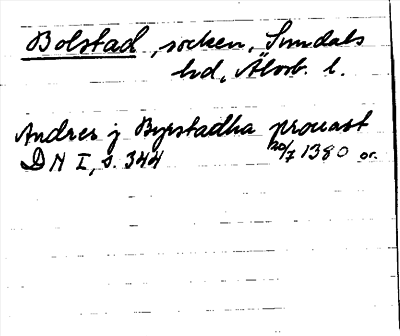 Bolstad, socken, Sundals
hd, Älvsb. l.
Andres j Byrstadha prouast
DN I, s. 344 20/7 1380 or.